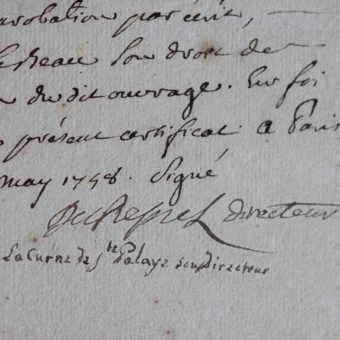 arobation par écrit, —
son droit de
du dit ouvrage. En foi
présent certificat. a Paris
may 1758. Signé
directeur
La Curne de Ste Palaye sous directeur